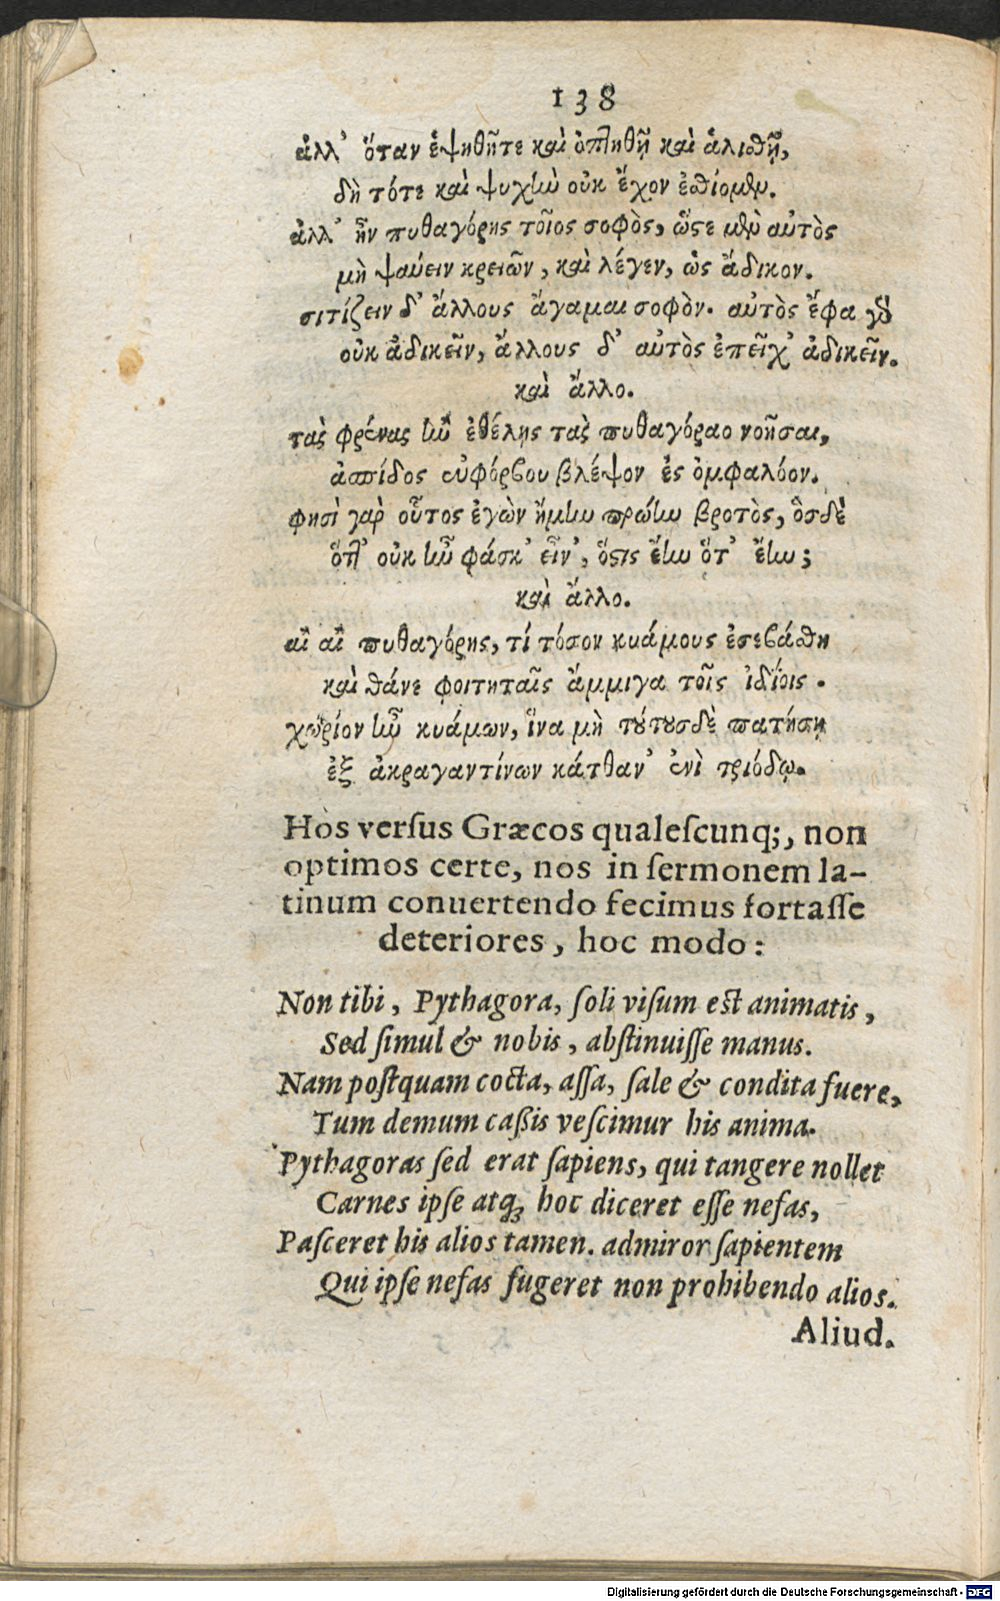 138
ἀλλ' ὅταν ἑψηθῆτε καὶ ὀπτηθῇ καὶ ἁλισθῇ,
δὴ τότε καὶ ψυχὴν οὐκ ἔχον ἐσθίομεν.
ἀλλ' ἦν πυθαγόρης τοῖος σοφὸς, ὥστε μὲν αὐτὸς
μὴ ψαύειν κρειῶν, καὶ λέγεν, ὡς ἄδικον.
σιτίζειν δ' ἄλλους ἄγαμαι σοφὸν. αὐτὸς ἔφα γὰρ
οὐκ ἀδικεῖν, ἄλλους δ' αὐτὸς ἐπεῖχ' ἀδικεῖν.
καὶ ἄλλο.
τὰς φρένας ἢν ἐθέλῃς τὰς πυθαγόραο νοῆσαι,
ἀσπίδος εὐφόρβου βλέψον ἐς ὀμφαλόον.
φησὶ γαρ οὗτος ἐγὼν ἤμην πρώην βροτὸς, ὃς δὲ
ὅτ' οὐκ ἦν φάσκ' εἶν', ὅστις ἔην ὅτ' ἔην;
καὶ ἄλλο.
αἲ αἲ πυθαγόρης, τί τόσον κυάμους ἐσεβάσθη
καὶ θάνε φοιτηταῖς ἄμμιγα τοῖς ἰδίοις.
χωρίον ἦν κυάμων, ἵνα μὴ τούτους δὲ πατήσῃ
ἐξ ἀκραγαντίνων κάτθαν' ἐνὶ τριόδῳ.
Hos verſus Græcos qualeſcunq;, non
optimos certe, nos in ſermonem la-
tinum conuertendo fecimus fortaſſe
deteriores, hoc modo:
Non tibi, Pythagora, ſoli viſum est animatis,
Sed ſimul & nobis, abſtinuiſſe manus.
Nam poſtquam cocta, aſſa, ſale & condita fuere,
Tum demum caßis veſcimur his anima.
Pythagoras ſed erat ſapiens, qui tangere nollet
Carnes ipſe atq; hoc diceret eſſe nefas,
Paſceret his alios tamen. admiror ſapientem
Qui ipſe nefas fugeret non prohibendo alios.
Aliud.
Digitalisierung gefördert durch die Deutsche Forschungsgemeinschaft - DFG